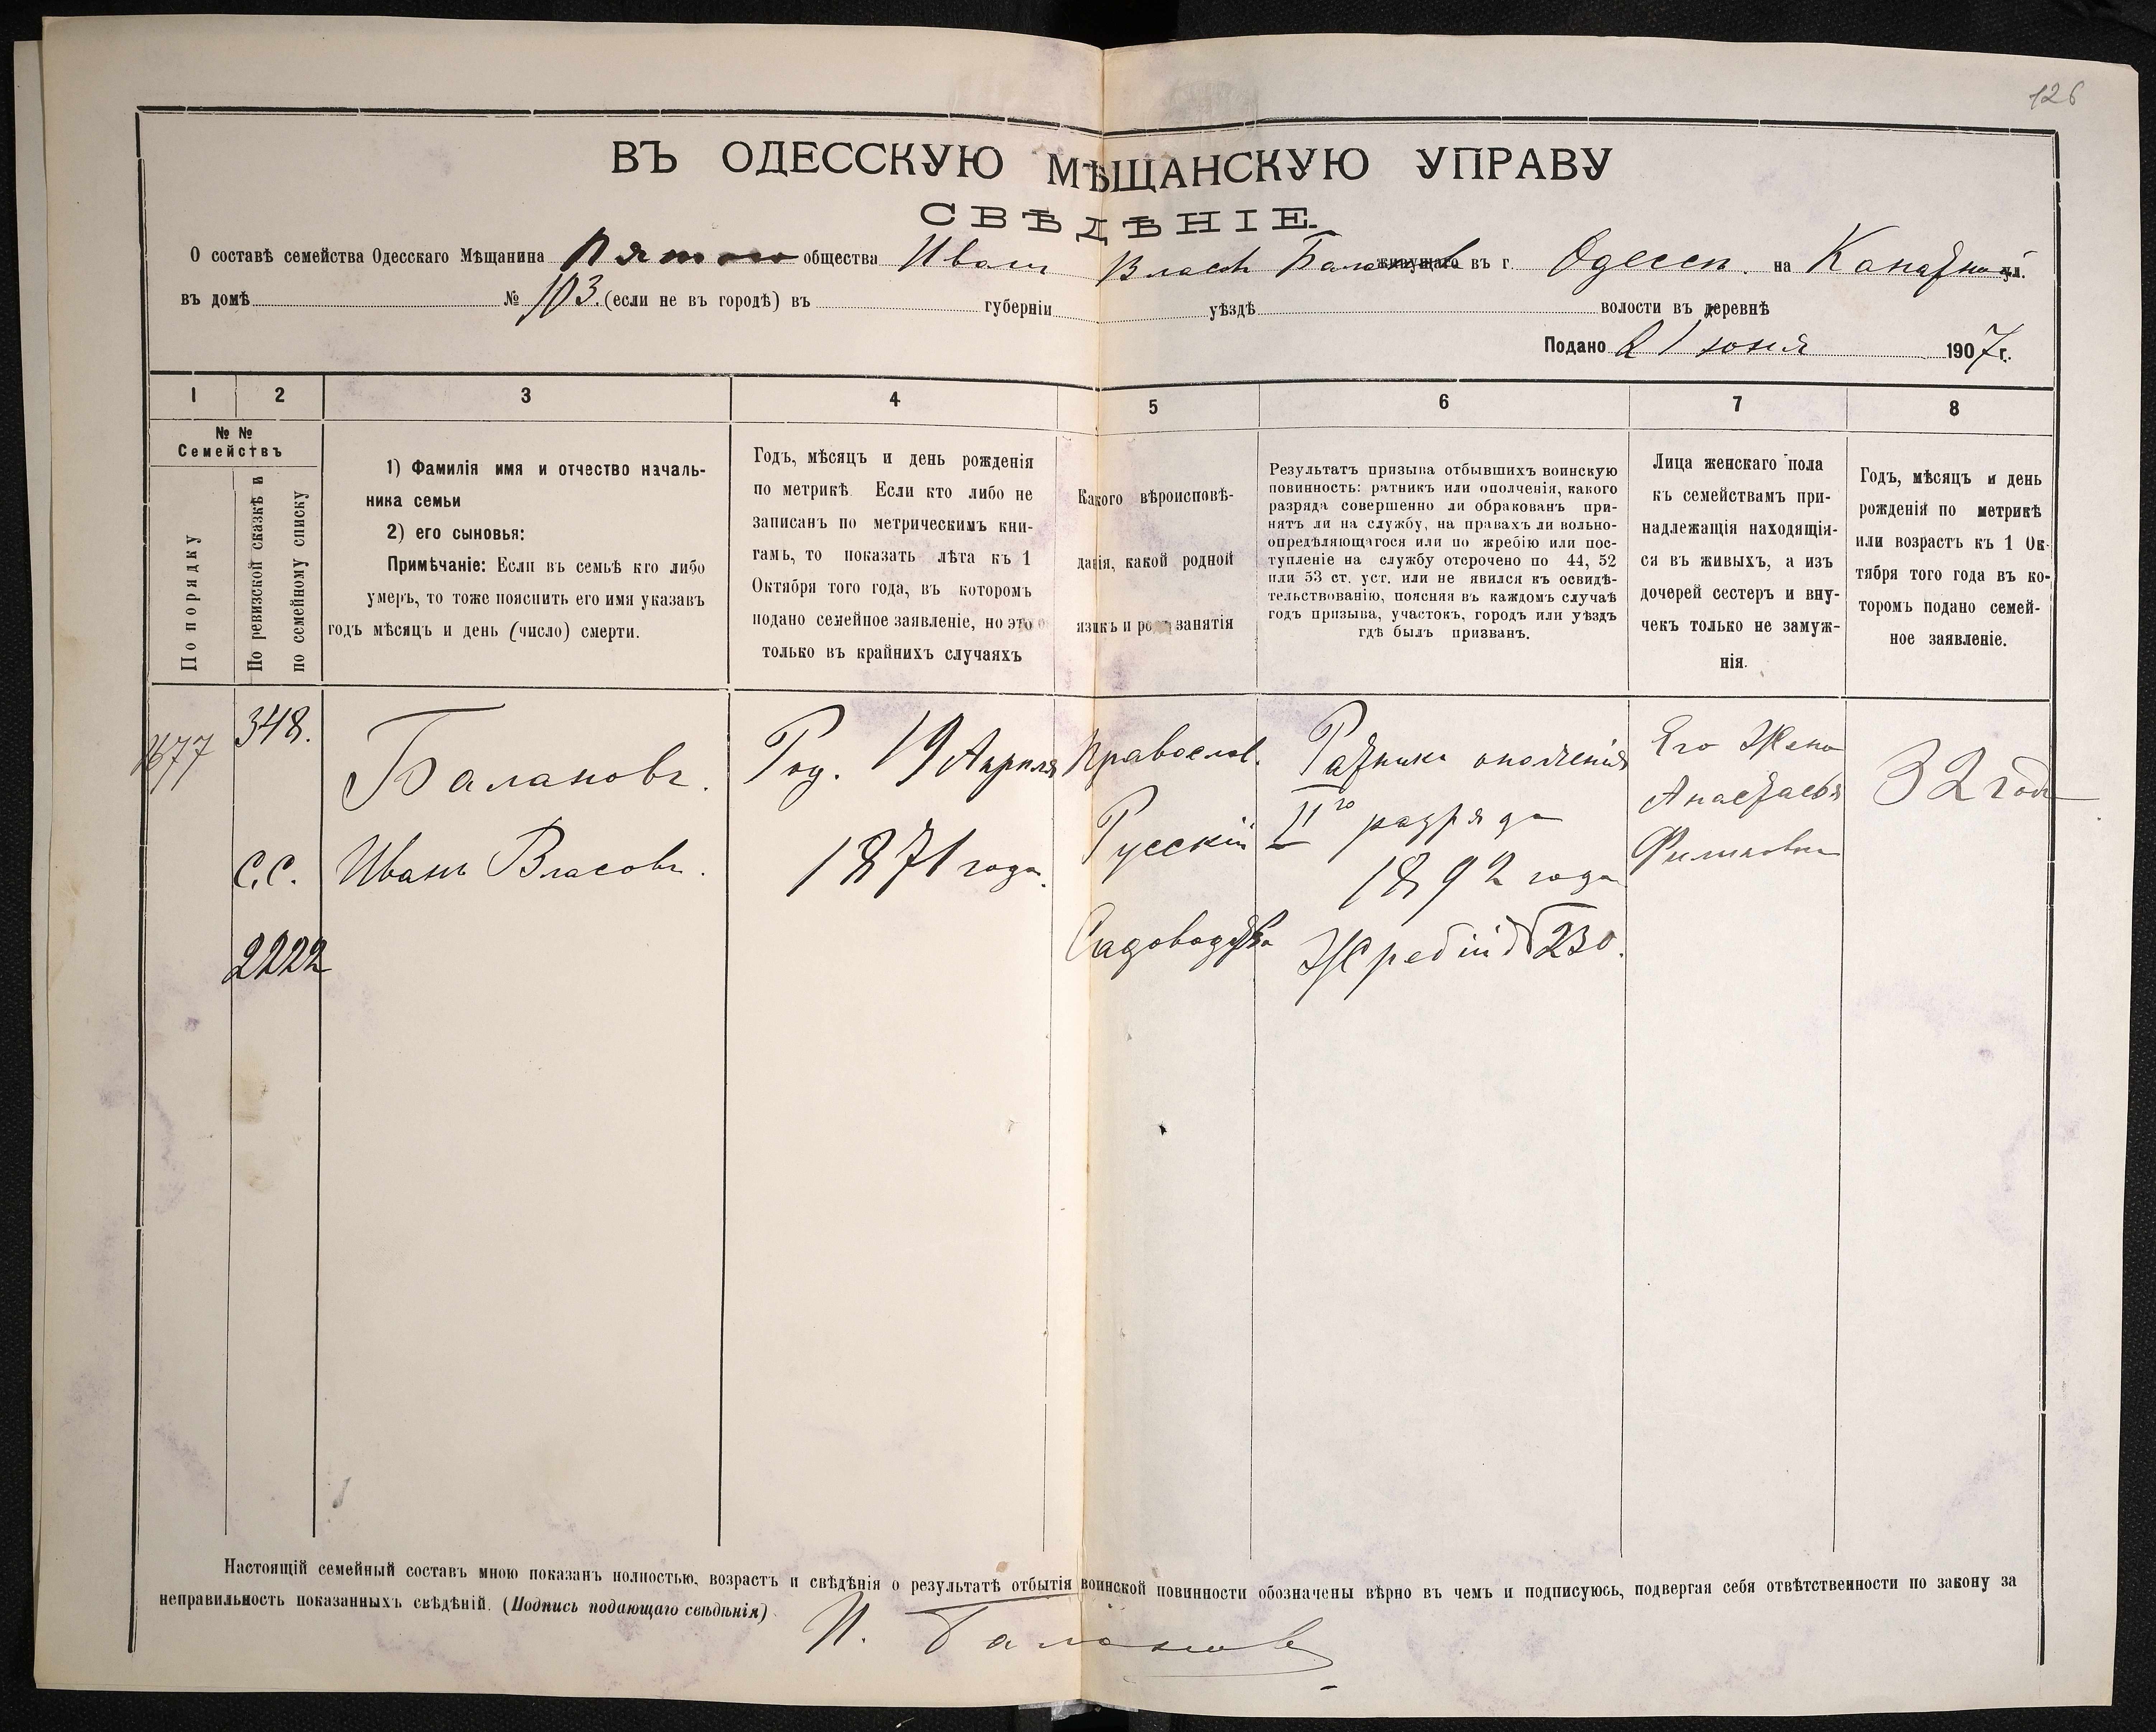 126
ВЪ ОДЕССКУЮ МѢЩАНСКУЮ УПРАВУ
СВѢДѢНІЕ.
О составѣ семейства Одесскаго Мѣщанина Пятого общества Иван Власов Баланов живущаго въ г. Одессы. на Канатной ул.
въ домѣ № 103. (если не въ городѣ) въ губерніи уѣздѣ волости въ деревнѣ
Подано 21 юня 1907 г.
1 2 3 4 5 6 7 8
№ №
Семействъ
По порядку
По ревизской сказкѣ и
по семейному списку
1) Фамилія имя и отчество началь-
ника семьи
2) его сыновья:
Примѣчаніе: Если въ семьѣ кто либо
умеръ, то тоже пояснить его имя указавъ
годъ мѣсяцъ и день (число) смерти.
Годъ, мѣсяцъ и день рожденія
по метрикѣ. Если кто либо не
записанъ по метрическимъ кни-
гамъ, то показать лѣта къ 1
Октября того года, въ которомъ
подано семейное заявленіе, но это
только въ крайнихъ случаяхъ
Какого вѣроисповѣ-
данія, какой родной
языкъ и родъ занятія
Результатъ призыва отбывшихъ воинскую
повинность: ратникъ или ополченія, какого
разряда совершенно ли обракованъ при-
нятъ ли на службу, на правахъ ли вольно-
опредѣляющагося или по жребію или пос-
тупленіе на службу отсрочено по 44, 52
или 53 ст. уст. или не явился къ освидѣ-
тельствованію, поясняя въ каждомъ случаѣ
годъ призыва, участокъ, городъ или уѣздъ
гдѣ былъ призванъ.
Лица женскаго пола
къ семействамъ при-
надлежащія находящія-
ся въ живыхъ, а изъ
дочерей сестеръ и вну-
чекъ только не замуж-
нія.
Годъ, мѣсяцъ и день
рожденія по метрикѣ
или возрастъ къ 1 Ок-
тября того года въ ко-
торомъ подано семей-
ное заявленіе.
1677
348.
С.С.
2222
Балановъ.
Иванъ Власовъ.
Род. 19 Апреля
1871 года.
Православ.
Русскій
Садоводство
Ратника ополченія
II го разряда
1892 года
Жребій № 230.
Его Жена
Анастасья
Филиповна
32 года
Настоящій семейный составъ мною показанъ полностью, возрастъ и свѣдѣнія о результатѣ отбытія воинской повинности обозначены вѣрно въ чемъ и подписуюсь, подвергая себя отвѣтственности по закону за
неправильность показанныхъ свѣдѣній. (Подпись подающаго свѣдѣнія) И. Баланов